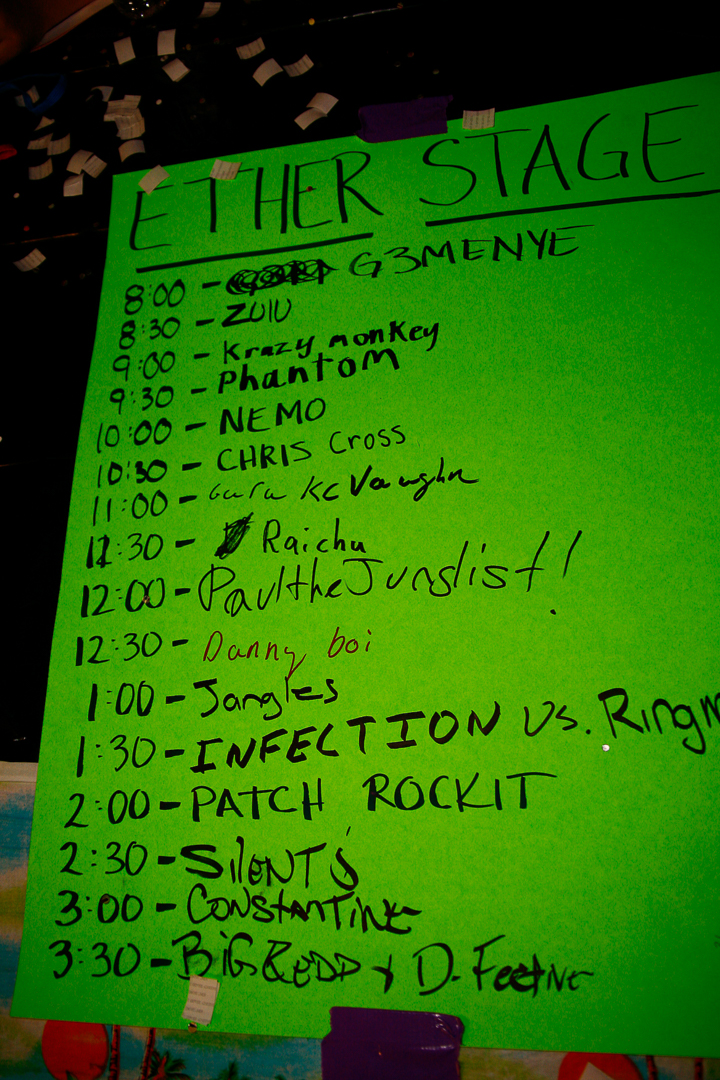 ETHER STAGE
8:00 - G3MENYE
8:30 - ZUIU
9:00 - Krazy monkey
9:30 - Phantom
10:00 - NEMO
10:30 - CHRIS Cross
11:00 - KC Vaughn
11:30 - Raichu
12:00 - PaultheJunglist!
12:30 - Danny boi
1:00 - Jangles
1:30 - INFECTION vs. Ringm
2:00 - PATCH ROCKIT
2:30 - SilENT J
3:00 - CONSTANTINE
3:30 - BiG REDD + D.